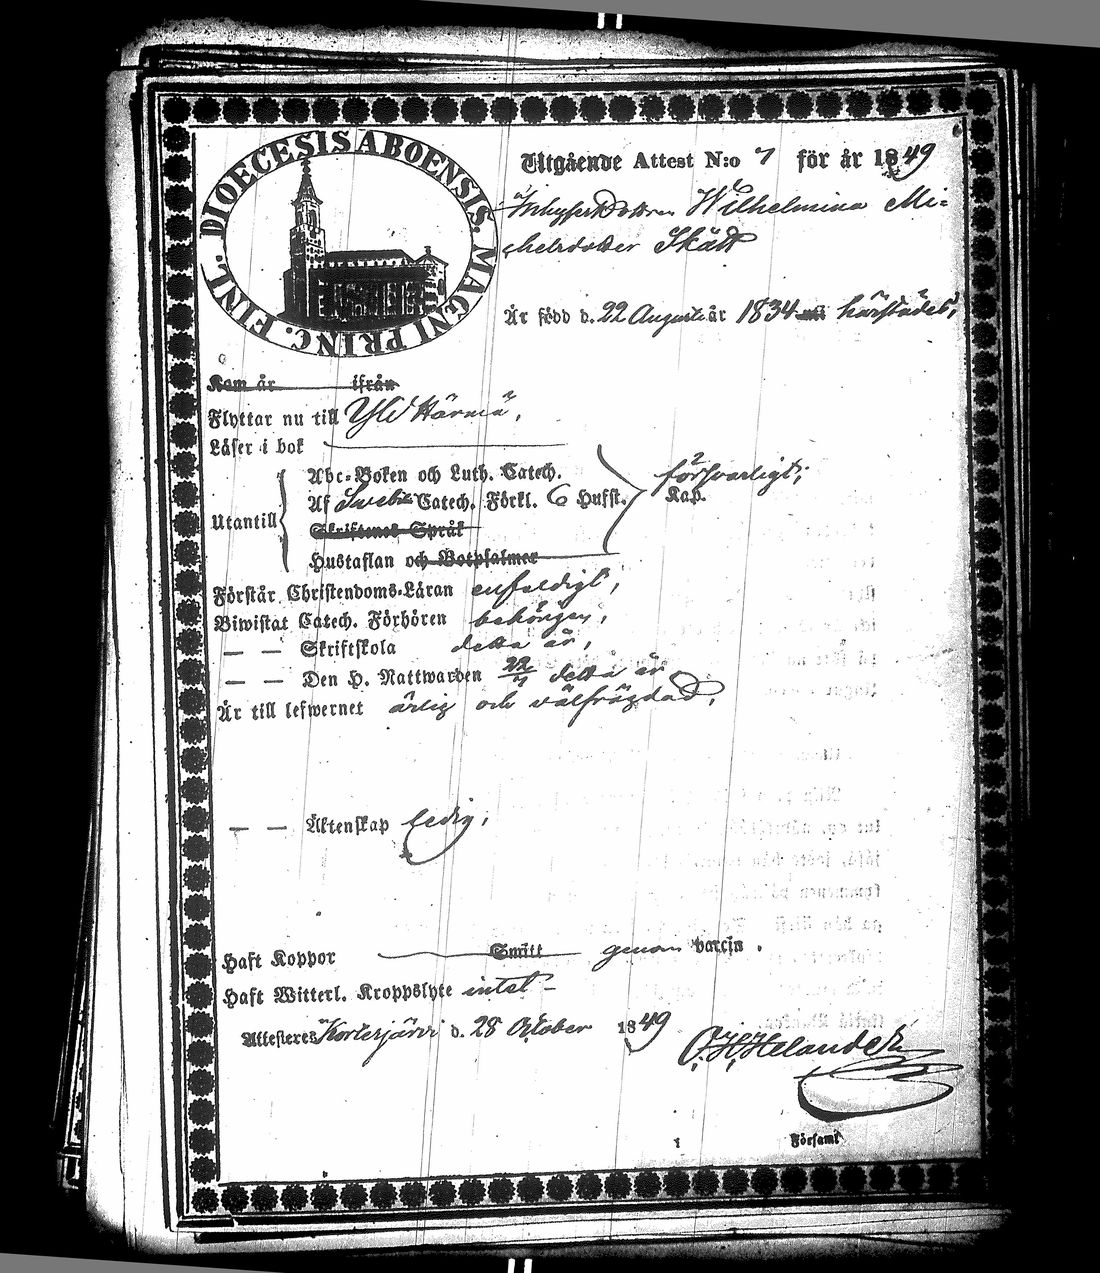 DIOECESIS ABOENSIS. MAGNI PRINC. FINL.
Utgående Attest N:o 7 för år 1849
Inhyses Dottren Wilhelmina Mi-
chelsdotter Skätt
Är född d. 22 Augusti år 1834 härstädes,
Kom år ifrån
Flyttar nu till Yli Härmä,
Läser i bok
Abc-Boken och Luth. Catech. försvarligt;
Utantill Af Svebi: Catech. Förkl. 6 Hufst. 2 Kap.
Skriftenes Språk
Hustaflan och Botpsalmer
Förstår Christendoms-Läran enfaldigt,
Biwistat Catech. Förhören behörigen,
— — Skriftskola detta år,
— — Den H. Nattwarden 22/7 detta år
Är till lefwernet ärlig och välfräjdad,
— — Äktenskap ledig,
Haft Koppor Smitt genom vaccin.
Haft Witterl. Kroppslyte intet –
Attesteres Kortesjärvi d. 28 October 1849
C. H. Helander
Församl